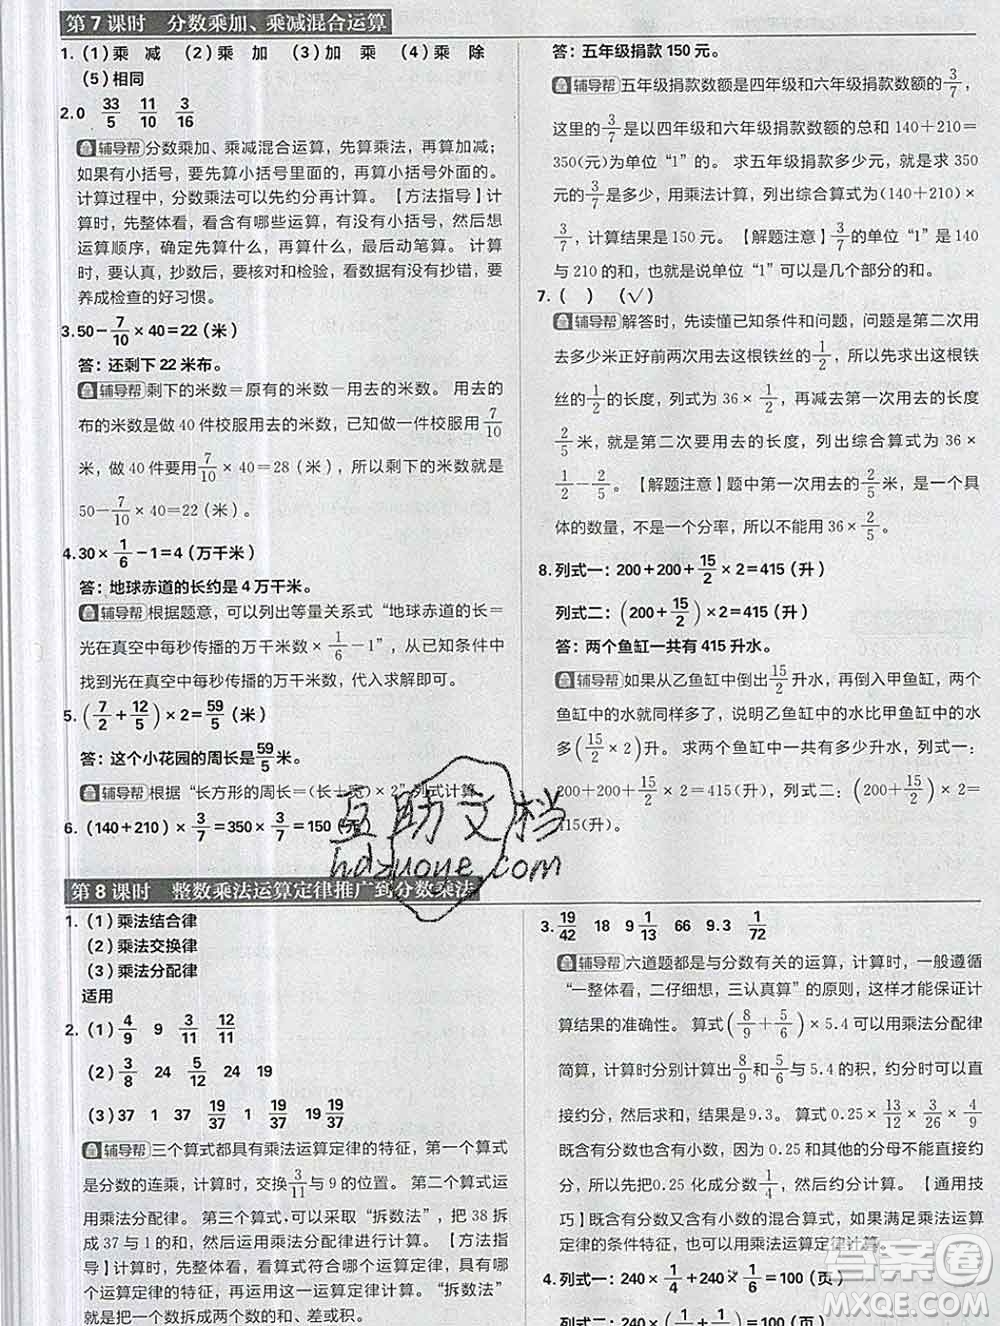 第7课时 分数乘加、乘减混合运算
1. (1) 乘 减 (2) 乘 加 (3) 加 乘 (4) 乘 除
(5) 相同
2. 0 33/5 11/10 3/16
辅导帮 分数乘加、乘减混合运算，先算乘法，再算加减；
如果有小括号，要先算小括号里面的，再算小括号外面的。
计算过程中，分数乘法可以先约分再计算。【方法指导】计
算时，先整体看，看含有哪些运算，有没有小括号，然后想
运算顺序，确定先算什么，再算什么，最后动笔算。 计算
时，要认真，抄数后，要核对和检验，看数有没有抄错，要
养成检查的好习惯。
3. 50－7/10×40＝22（米）
答：还剩下 22 米布。
辅导帮 剩下的米数＝原有的米数－用去的米数。 用去的
布的米数是做 40 件校服用去的，已知做一件校服用 7/10
米，做 40 件要用 7/10×40＝28（米），所以剩下的米数就是
50－7/10×40＝22（米）。
4. 30×1/6－1＝4（万千米）
答：地球赤道的长约是 4 万千米。
辅导帮 根据题意，可以列出等量关系式“地球赤道的长＝
光在真空中每秒传播的万千米数×1/6－1”，从已知条件中
找到光在真空中每秒传播的万千米数，代入求解即可。
5. (7/2＋12/5)×2＝59/5（米）
答：这个小花园的周长是 59/5 米。
辅导帮 根据“长方形的周长＝（长＋宽）×2”列式计算。
6. (140＋210)×3/7＝350×3/7＝150（元）
答：五年级捐款 150 元。
辅导帮 五年级捐款数额是四年级和六年级捐款数额的 3/7，
这里的 3/7 是以四年级和六年级捐款数额的总和 140＋210＝
350(元)为单位“1”的。 求五年级捐款多少元，就是求 350
元的 3/7 是多少，用乘法计算，列出综合算式为(140＋210)×
3/7，计算结果是 150 元。【解题注意】3/7 的单位“1”是 140
与 210 的和，也就是说单位“1”可以是几个部分的和。
7. （ ） （√）
辅导帮 解答时，先读懂已知条件和问题，问题是第二次用
去多少米正好前两次用去这根铁丝的 1/2，所以先求出这根铁
丝的 1/2 的长度，列式为 36×1/2，再减去第一次用去的长度
2/5 米，就是第二次要用去的长度，列出综合算式为 36×
1/2－2/5。【解题注意】题中第一次用去 2/5 米，是一个具
体的数量，不是一个分率，所以不能用 36×2/5。
8. 列式一：200＋200＋15/2×2＝415（升）
列式二：(200＋15/2)×2＝415（升）
答：两个鱼缸一共有 415 升水。
辅导帮 如果从乙鱼缸中倒出 15/2 升水，再倒入甲鱼缸，两个
鱼缸中的水就同样多了，说明乙鱼缸中的水比甲鱼缸中的水
多(15/2×2)升。 求两个鱼缸中一共有多少升水，列式一：
200＋200＋15/2×2＝415（升），列式二：(200＋15/2)×2＝
415(升)。
第8课时 整数乘法运算定律推广到分数乘法
1. (1) 乘法结合律
(2) 乘法交换律
(3) 乘法分配律
适用
2. (1) 4/9 9 3/11 12/11
(2) 3/8 24 5/12 24 19
(3) 37 1 37 19/37 1 19/37 19/37
辅导帮 三个算式都具有乘法运算定律的特征，第一个算式
是分数的连乘，计算时，交换 3/11 与 9 的位置。 第二个算式运
用乘法分配律。 第三个算式，可以采取“拆数法”，把 38 拆
成 37 与 1 的和，然后运用乘法分配律进行计算。【方法指
导】计算时，要看算式符合哪一个运算定律，具有运算定律
的特征，再运用这一运算定律进行简便计算。“拆数法”
就是把一个数拆成两个数的和、差或积。
3. 19/42 18 9 1/13 66 9.3 1/72
辅导帮 六道题都是与分数有关的运算，计算时，一般遵循
“一整体看，二仔细想，三认真算”的原则，这样才能保证计
算结果的准确性。 算式(8/9＋5/6)×5.4 可以用乘法分配律
简算，计算时分别计算出 8/9 和 5/6 与 5.4 的积，约分时可以直
接约分，然后求和，结果是 9.3。 算式 0.25×13/12×3/26×4/9
既含有分数也含有小数，因为 0.25 和其他的分母不能直接约
分，所以先把 0.25 化成分数 1/4，然后约分计算。【通用技
巧】既含有分数又含有小数的混合算式，如果满足乘法运算
定律的条件特征，也可以用乘法运算定律计算。
4. 列式一：240×1/4＋240×1/6＝100（页）
互助文档
hdzuoye.com
答案圈
MXQE.COM